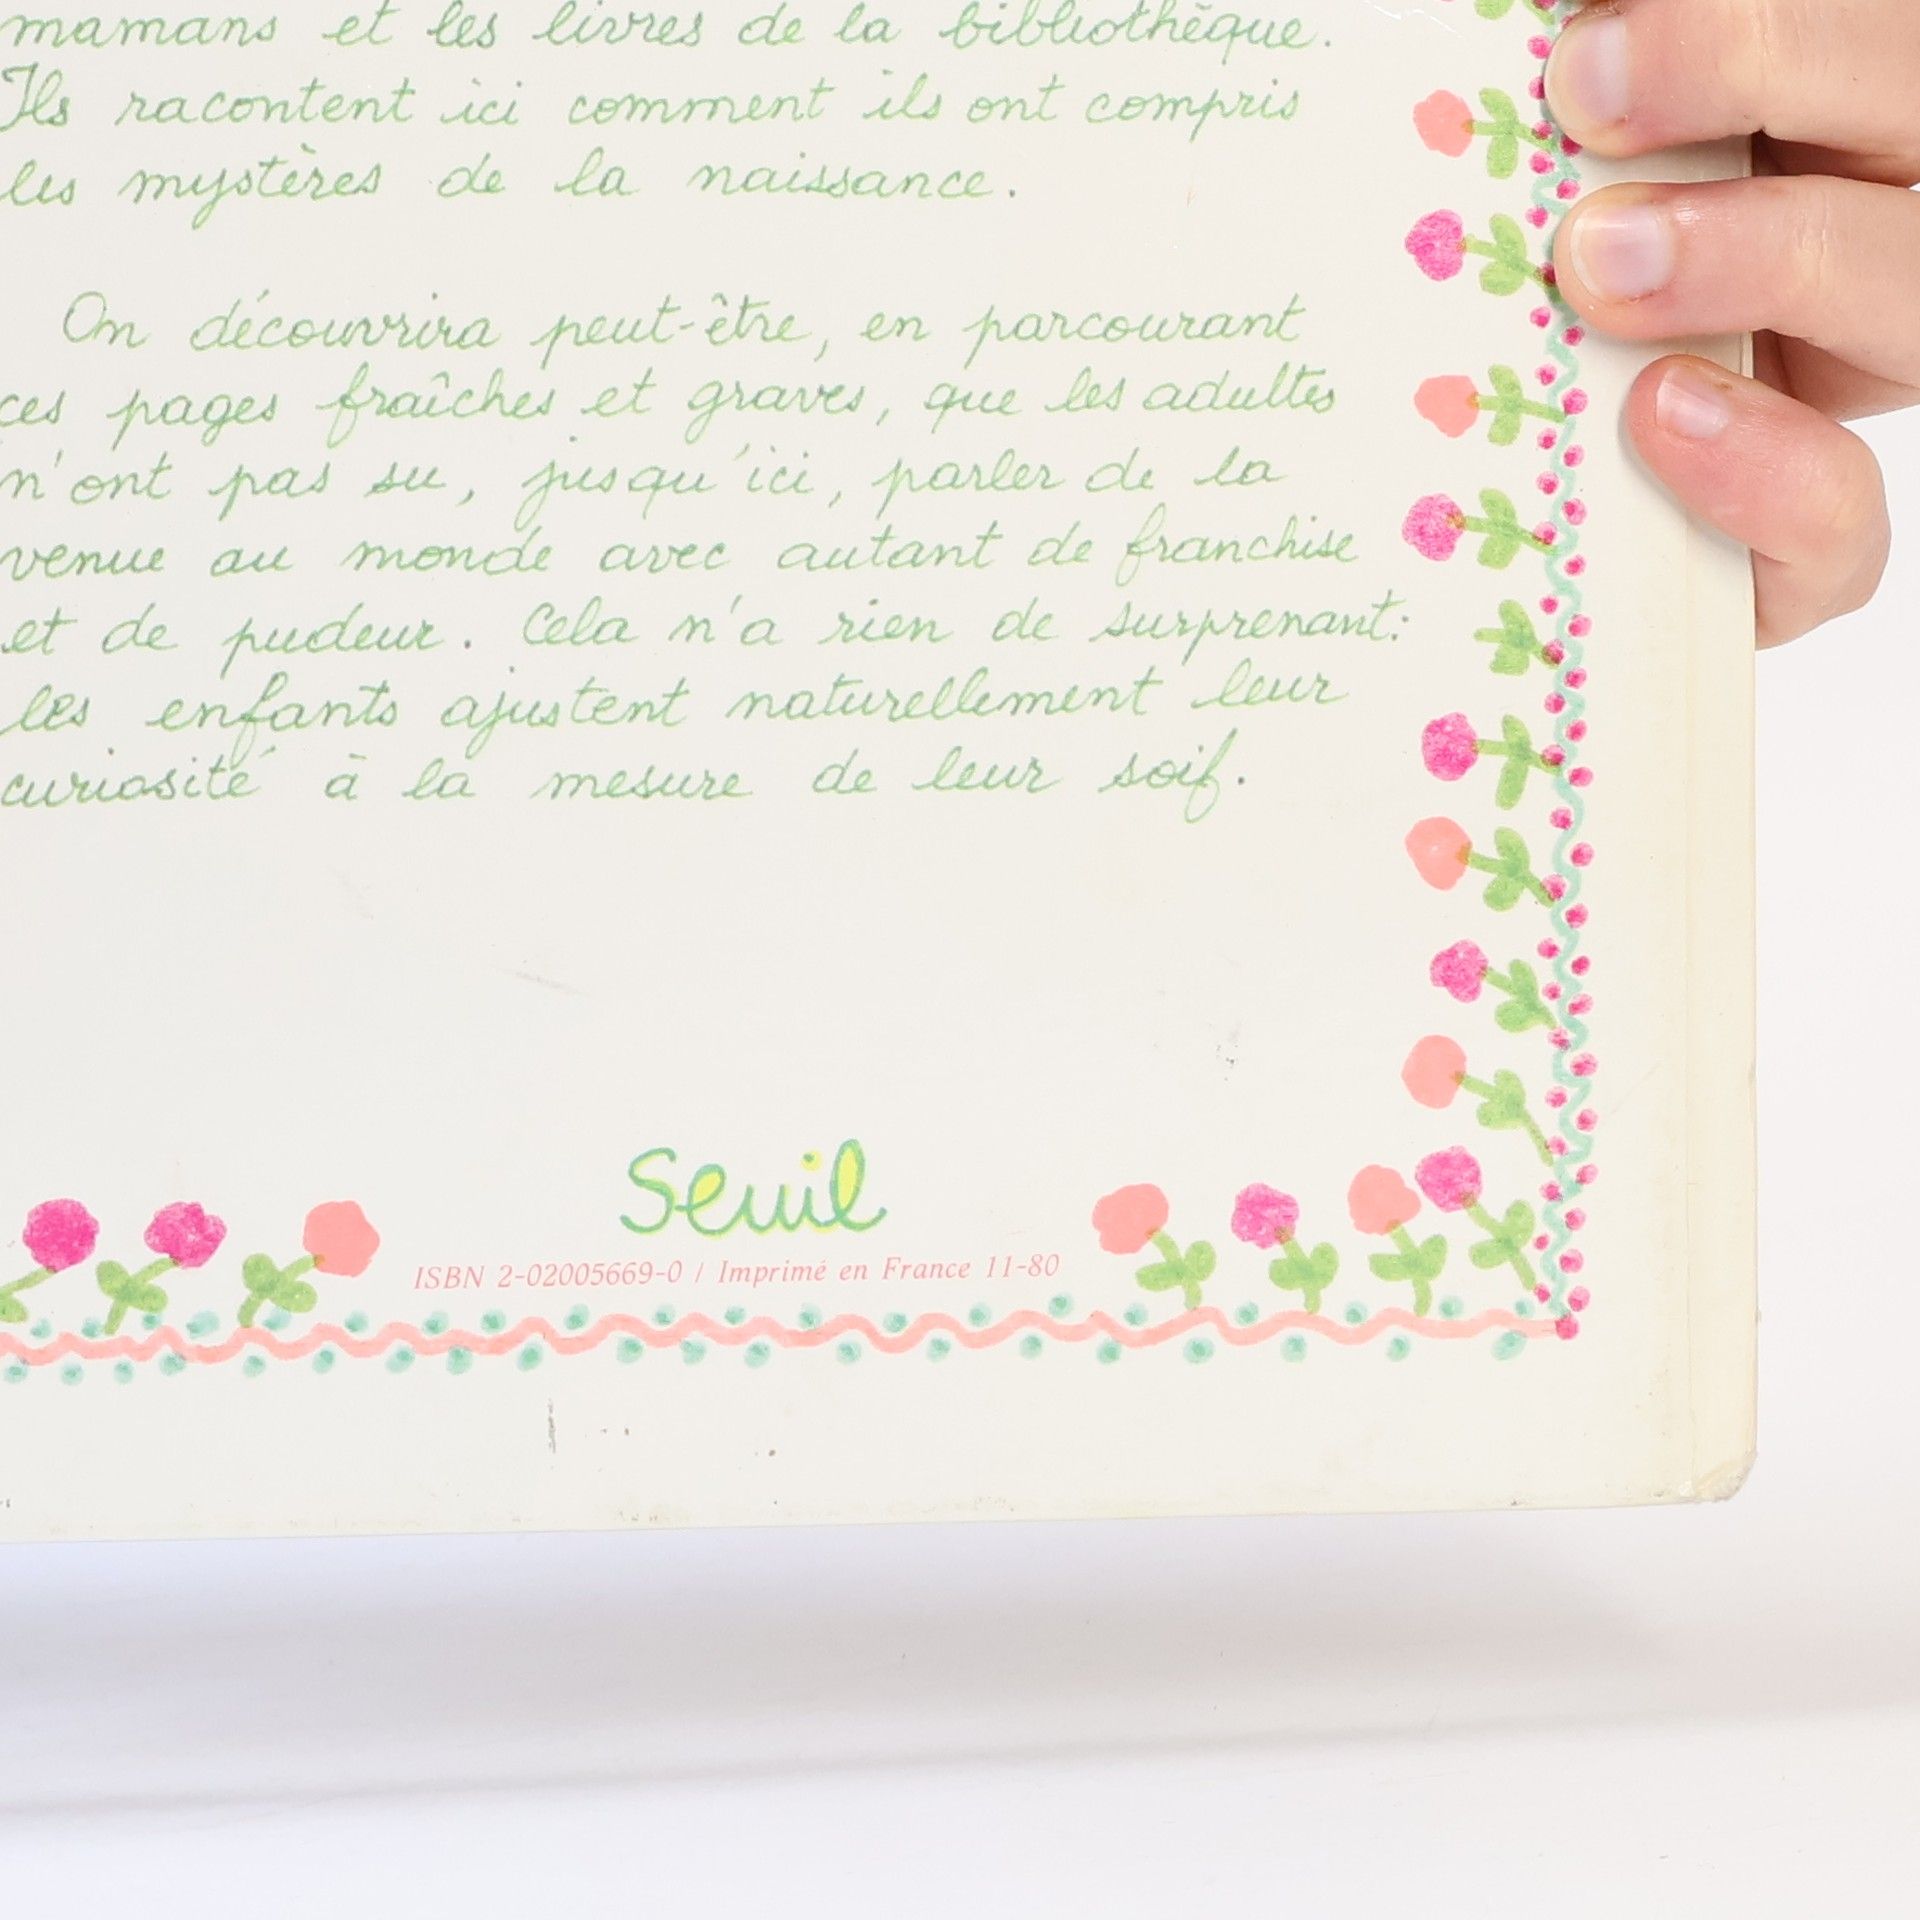 mamans et les livres de la bibliothèque.
Ils racontent ici comment ils ont compris
les mystères de la naissance.
On découvrira peut-être, en parcourant
ces pages fraîches et graves, que les adultes
n'ont pas su, jusqu'ici, parler de la
venue au monde avec autant de franchise
et de pudeur. Cela n'a rien de surprenant:
les enfants ajustent naturellement leur
curiosité à la mesure de leur soif.
Seuil
ISBN 2-02005669-0 / Imprimé en France 11-80